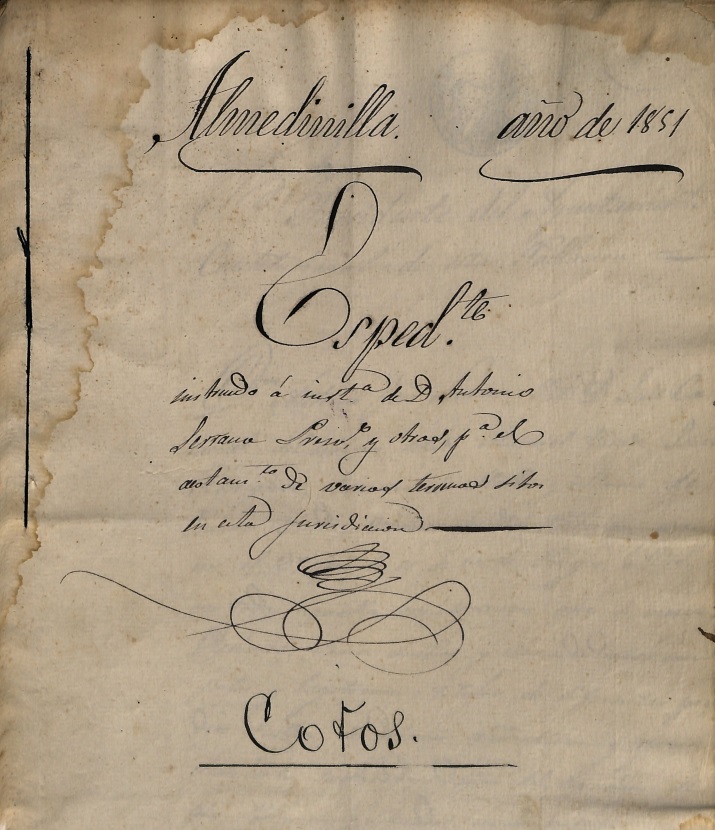 Almedinilla. año de 1851
Esped.te
instruido á inst.a de D Antonio
Serrano Presv.o y otros, p.a el
acotam.to de varios terrenos sitos
en esta jurisdicion
Cotos.